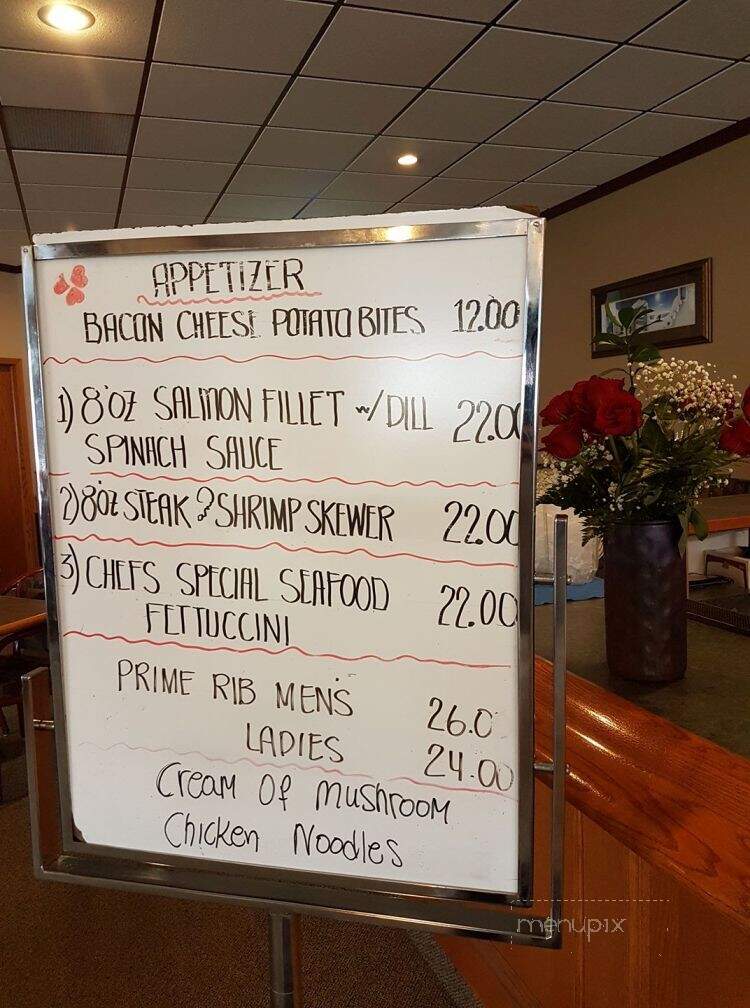 APPETIZER
BACON CHEESE POTATO BITES 12.00
1) 8'OZ SALMON FILLET w/DILL 22.00
SPINACH SAUCE
2) 8'OZ STEAK & SHRIMP SKEWER 22.00
3) CHEFS SPECIAL SEAFOOD 22.00
FETTUCCINI
PRIME RIB MENS 26.0
LADIES 24.00
Cream Of mushroom
Chicken Noodles
menupix